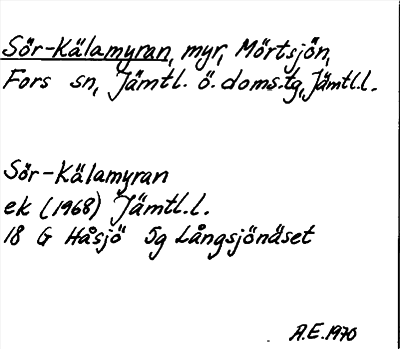 Sör-Kälamyran, myr, Mörtsjön,
Fors sn, Jämtl. ö. doms.tg, Jämtl.l.
Sör-Kälamyran
ek (1968) Jämtl.l.
18 G Håsjö 5g Långsjönäset
A.E. 1970